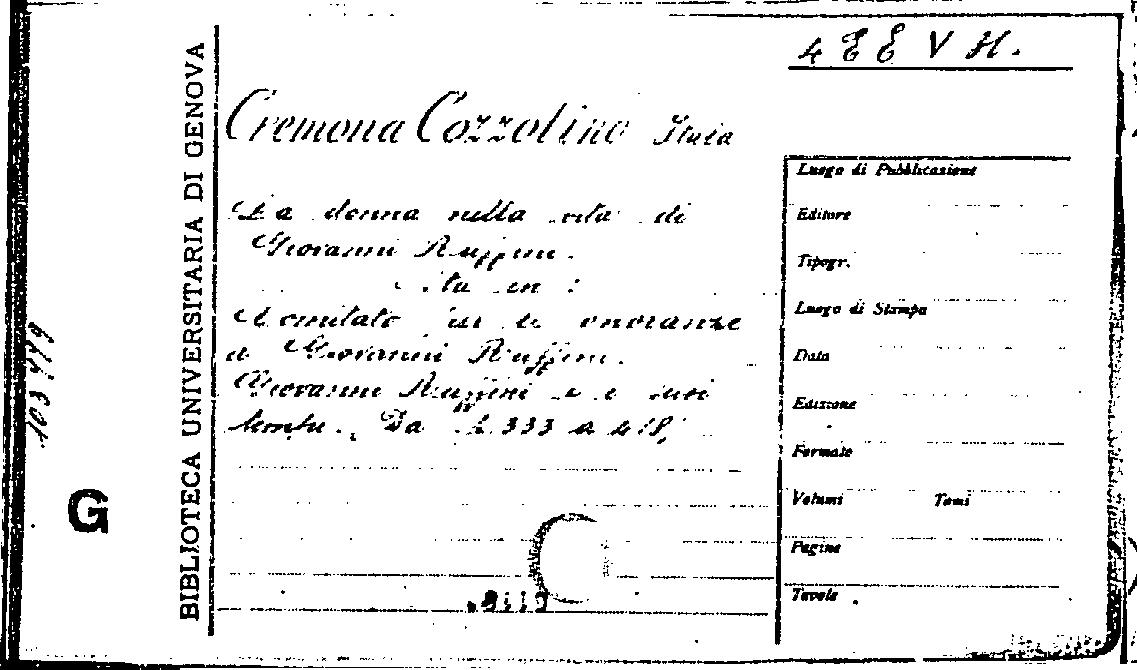 4 E E V H.
Cremona Cozzolino Itala
La donna nella vita di
Giovanni Ruffini.
Sta in:
Comitato per le onoranze
a Giovanni Ruffini.
Giovanni Ruffini e i suoi
tempi. Da p. 333 a 418
BIBLIOTECA UNIVERSITARIA DI GENOVA
G
Luogo di Pubblicazione
Editore
Tipogr.
Luogo di Stampa
Data
Edizione
Formato
Volumi Tomi
Pagine
Tavole